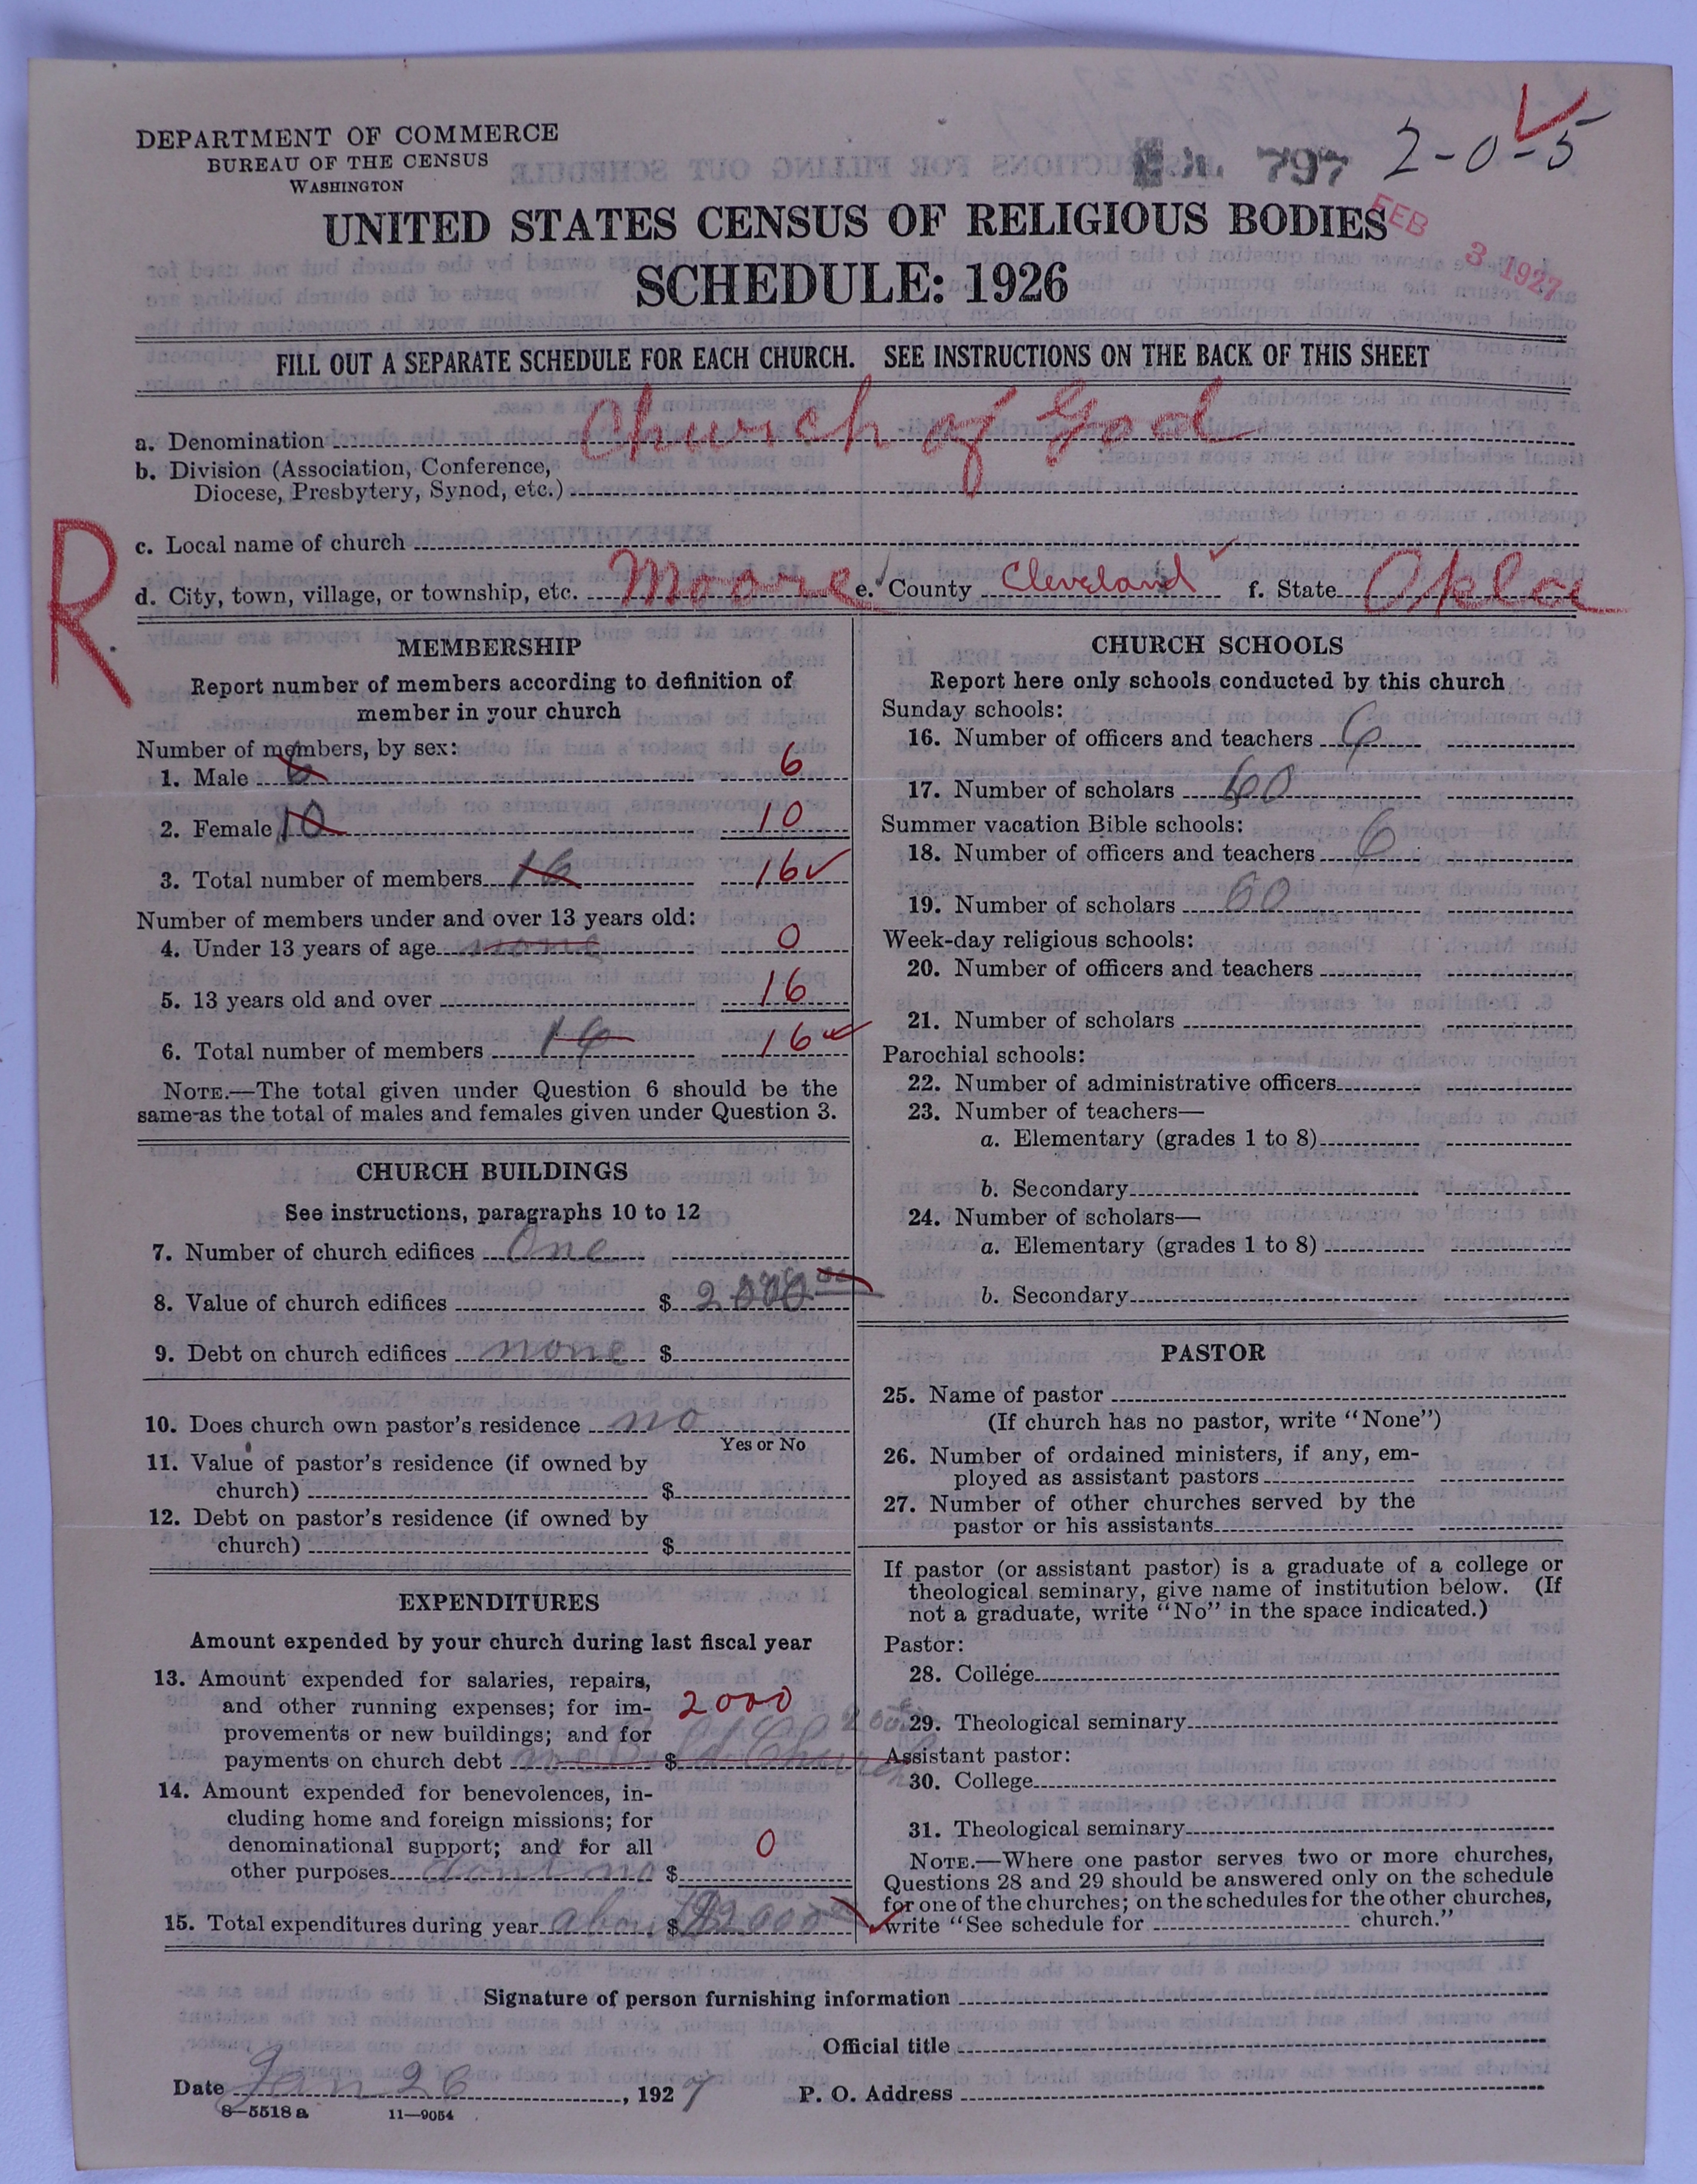 DEPARTMENT OF COMMERCE
BUREAU OF THE CENSUS
WASHINGTON
797
2-0-5
FEB 3 1927
UNITED STATES CENSUS OF RELIGIOUS BODIES
SCHEDULE: 1926
FILL OUT A SEPARATE SCHEDULE FOR EACH CHURCH. SEE INSTRUCTIONS ON THE BACK OF THIS SHEET
a. Denomination Church of God
b. Division (Association, Conference,
Diocese, Presbytery, Synod, etc.)
c. Local name of church
R
d. City, town, village, or township, etc. Moore e. County Cleveland f. State Okla
MEMBERSHIP
Report number of members according to definition of
member in your church
Number of members, by sex:
1. Male 6 6
2. Female 10 10
3. Total number of members 16 16
Number of members under and over 13 years old:
4. Under 13 years of age none 0
5. 13 years old and over 16
6. Total number of members 16 16
NOTE.—The total given under Question 6 should be the
same as the total of males and females given under Question 3.
CHURCH BUILDINGS
See instructions, paragraphs 10 to 12
7. Number of church edifices One
8. Value of church edifices $ 2000.00
9. Debt on church edifices none $
10. Does church own pastor's residence no
Yes or No
11. Value of pastor's residence (if owned by
church) $
12. Debt on pastor's residence (if owned by
church) $
EXPENDITURES
Amount expended by your church during last fiscal year
13. Amount expended for salaries, repairs,
and other running expenses; for im-
provements or new buildings; and for
payments on church debt $ Church
2000
14. Amount expended for benevolences, in-
cluding home and foreign missions; for
denominational support; and for all
other purposes dont no $ 0
15. Total expenditures during year about $ 2000
CHURCH SCHOOLS
Report here only schools conducted by this church
Sunday schools:
16. Number of officers and teachers 6
17. Number of scholars 60
Summer vacation Bible schools:
18. Number of officers and teachers 6
19. Number of scholars 60
Week-day religious schools:
20. Number of officers and teachers
21. Number of scholars
Parochial schools:
22. Number of administrative officers
23. Number of teachers—
a. Elementary (grades 1 to 8)
b. Secondary
24. Number of scholars—
a. Elementary (grades 1 to 8)
b. Secondary
PASTOR
25. Name of pastor
(If church has no pastor, write "None")
26. Number of ordained ministers, if any, em-
ployed as assistant pastors
27. Number of other churches served by the
pastor or his assistants
If pastor (or assistant pastor) is a graduate of a college or
theological seminary, give name of institution below. (If
not a graduate, write "No" in the space indicated.)
Pastor:
28. College
29. Theological seminary
Assistant pastor:
30. College
31. Theological seminary
NOTE.—Where one pastor serves two or more churches,
Questions 28 and 29 should be answered only on the schedule
for one of the churches; on the schedules for the other churches,
write "See schedule for church."
Signature of person furnishing information
Official title
Date Jan 26, 1927 P. O. Address
8—5518 a 11—9054